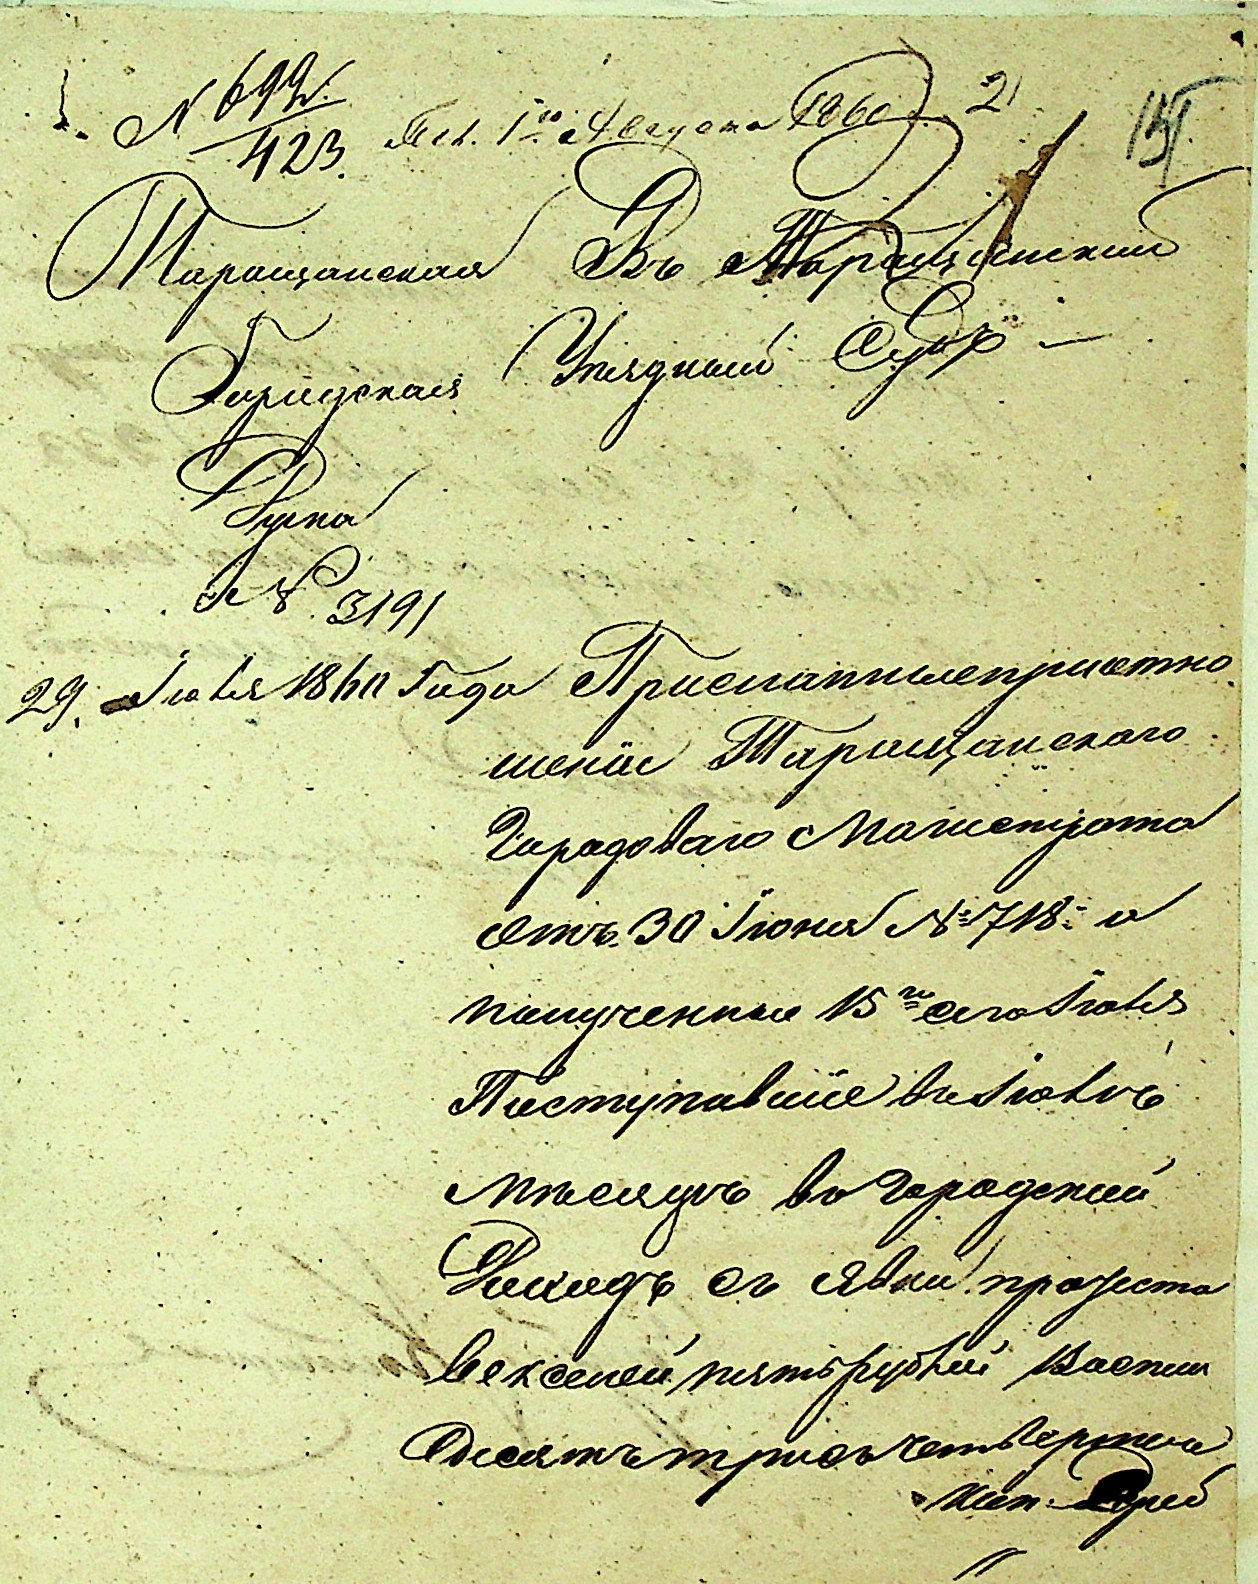 N 699
423.
Пол. 1го Августа 1860 21
151
Таращанская
Городская
Дума
№ 3191
29. Іюля 1860 Года
Въ Таращанский
Уѣздный Судъ
Присланные при отно
шеніе Таращанского
Городоваго Магистрата
отъ 30 Іюня № 718 и
полученные 15го сего Іюля
Поступавшіе въ Іюлѣ
мѣсяцѣ въ Городский
Доходъ съ явки протеста
векселей пять рублей Восем
десятъ три съ четвертью
коп. Сереб